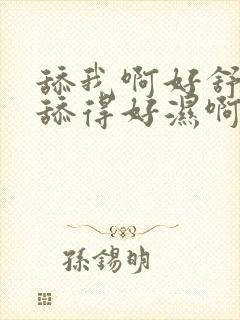 舔我啊好舒
舔得好濕啊
孫錫明